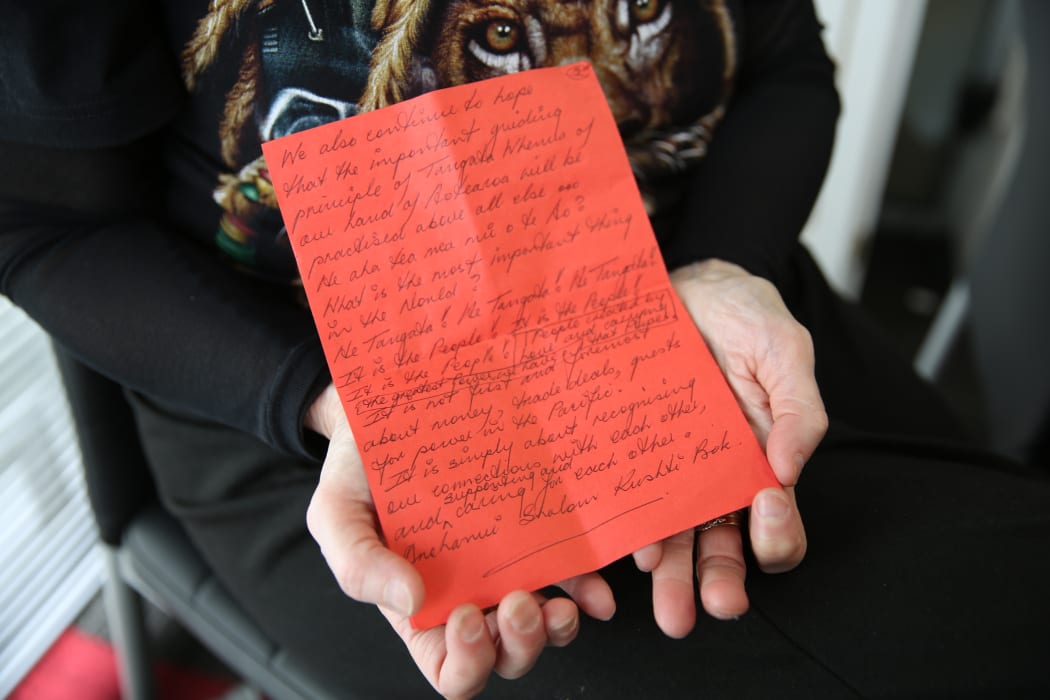 3
We also continue to hope
that the important guiding
principle of Tangata Whenua of
our land of Aotearoa will be
practised above all else ...
He aha tea mea nui o te Ao?
What is the most important thing
in the World?
He Tangata! He Tangata! He Tangata!
It is the People! It is the People!
It is the People! (People united by
the greatest power of love and carrying
that Hope)
It is not first and foremost
about money, trade deals, quests
for power in the Pacific.
It is simply about recognising
our connections with each other,
supporting and
and ^ caring for each other.
Shalom Rushti Bok.